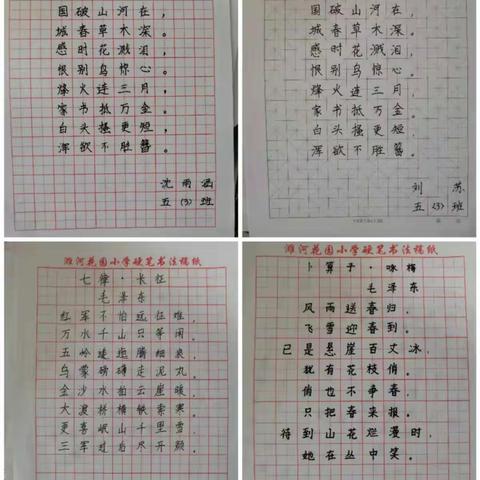 国破山河在，
城春草木深。
感时花溅泪，
恨别鸟惊心。
烽火连三月，
家书抵万金。
白头搔更短，
浑欲不胜簪。
沈雨涵
五(3)班
国破山河在，
城春草木深。
感时花溅泪，
恨别鸟惊心。
烽火连三月，
家书抵万金。
白头搔更短，
浑欲不胜簪。
刘苏
五(3)班
潍河花园小学硬笔书法稿纸
七律·长征
毛泽东
红军不怕远征难，
万水千山只等闲。
五岭逶迤腾细浪，
乌蒙磅礴走泥丸。
金沙水拍云崖暖，
大渡桥横铁索寒。
更喜岷山千里雪，
三军过后尽开颜。
潍河花园小学硬笔书法稿纸
卜算子·咏梅
毛泽东
风雨送春归，
飞雪迎春到。
已是悬崖百丈冰，
犹有花枝俏。
俏也不争春，
只把春来报。
待到山花烂漫时，
她在丛中笑。